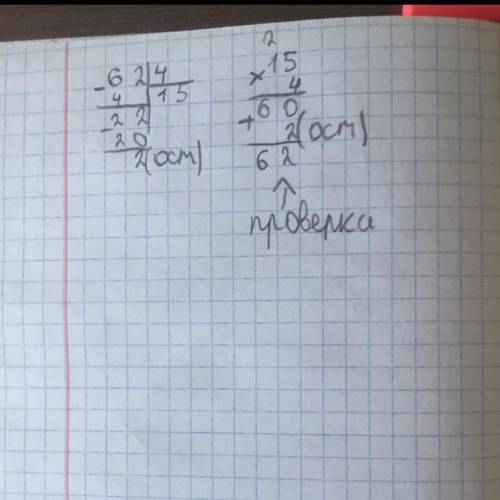 - 62 | 4
4 | 15
- 22
20
2(ост)
2
× 15
4
60
+ 2(ост)
62
↑
проверка